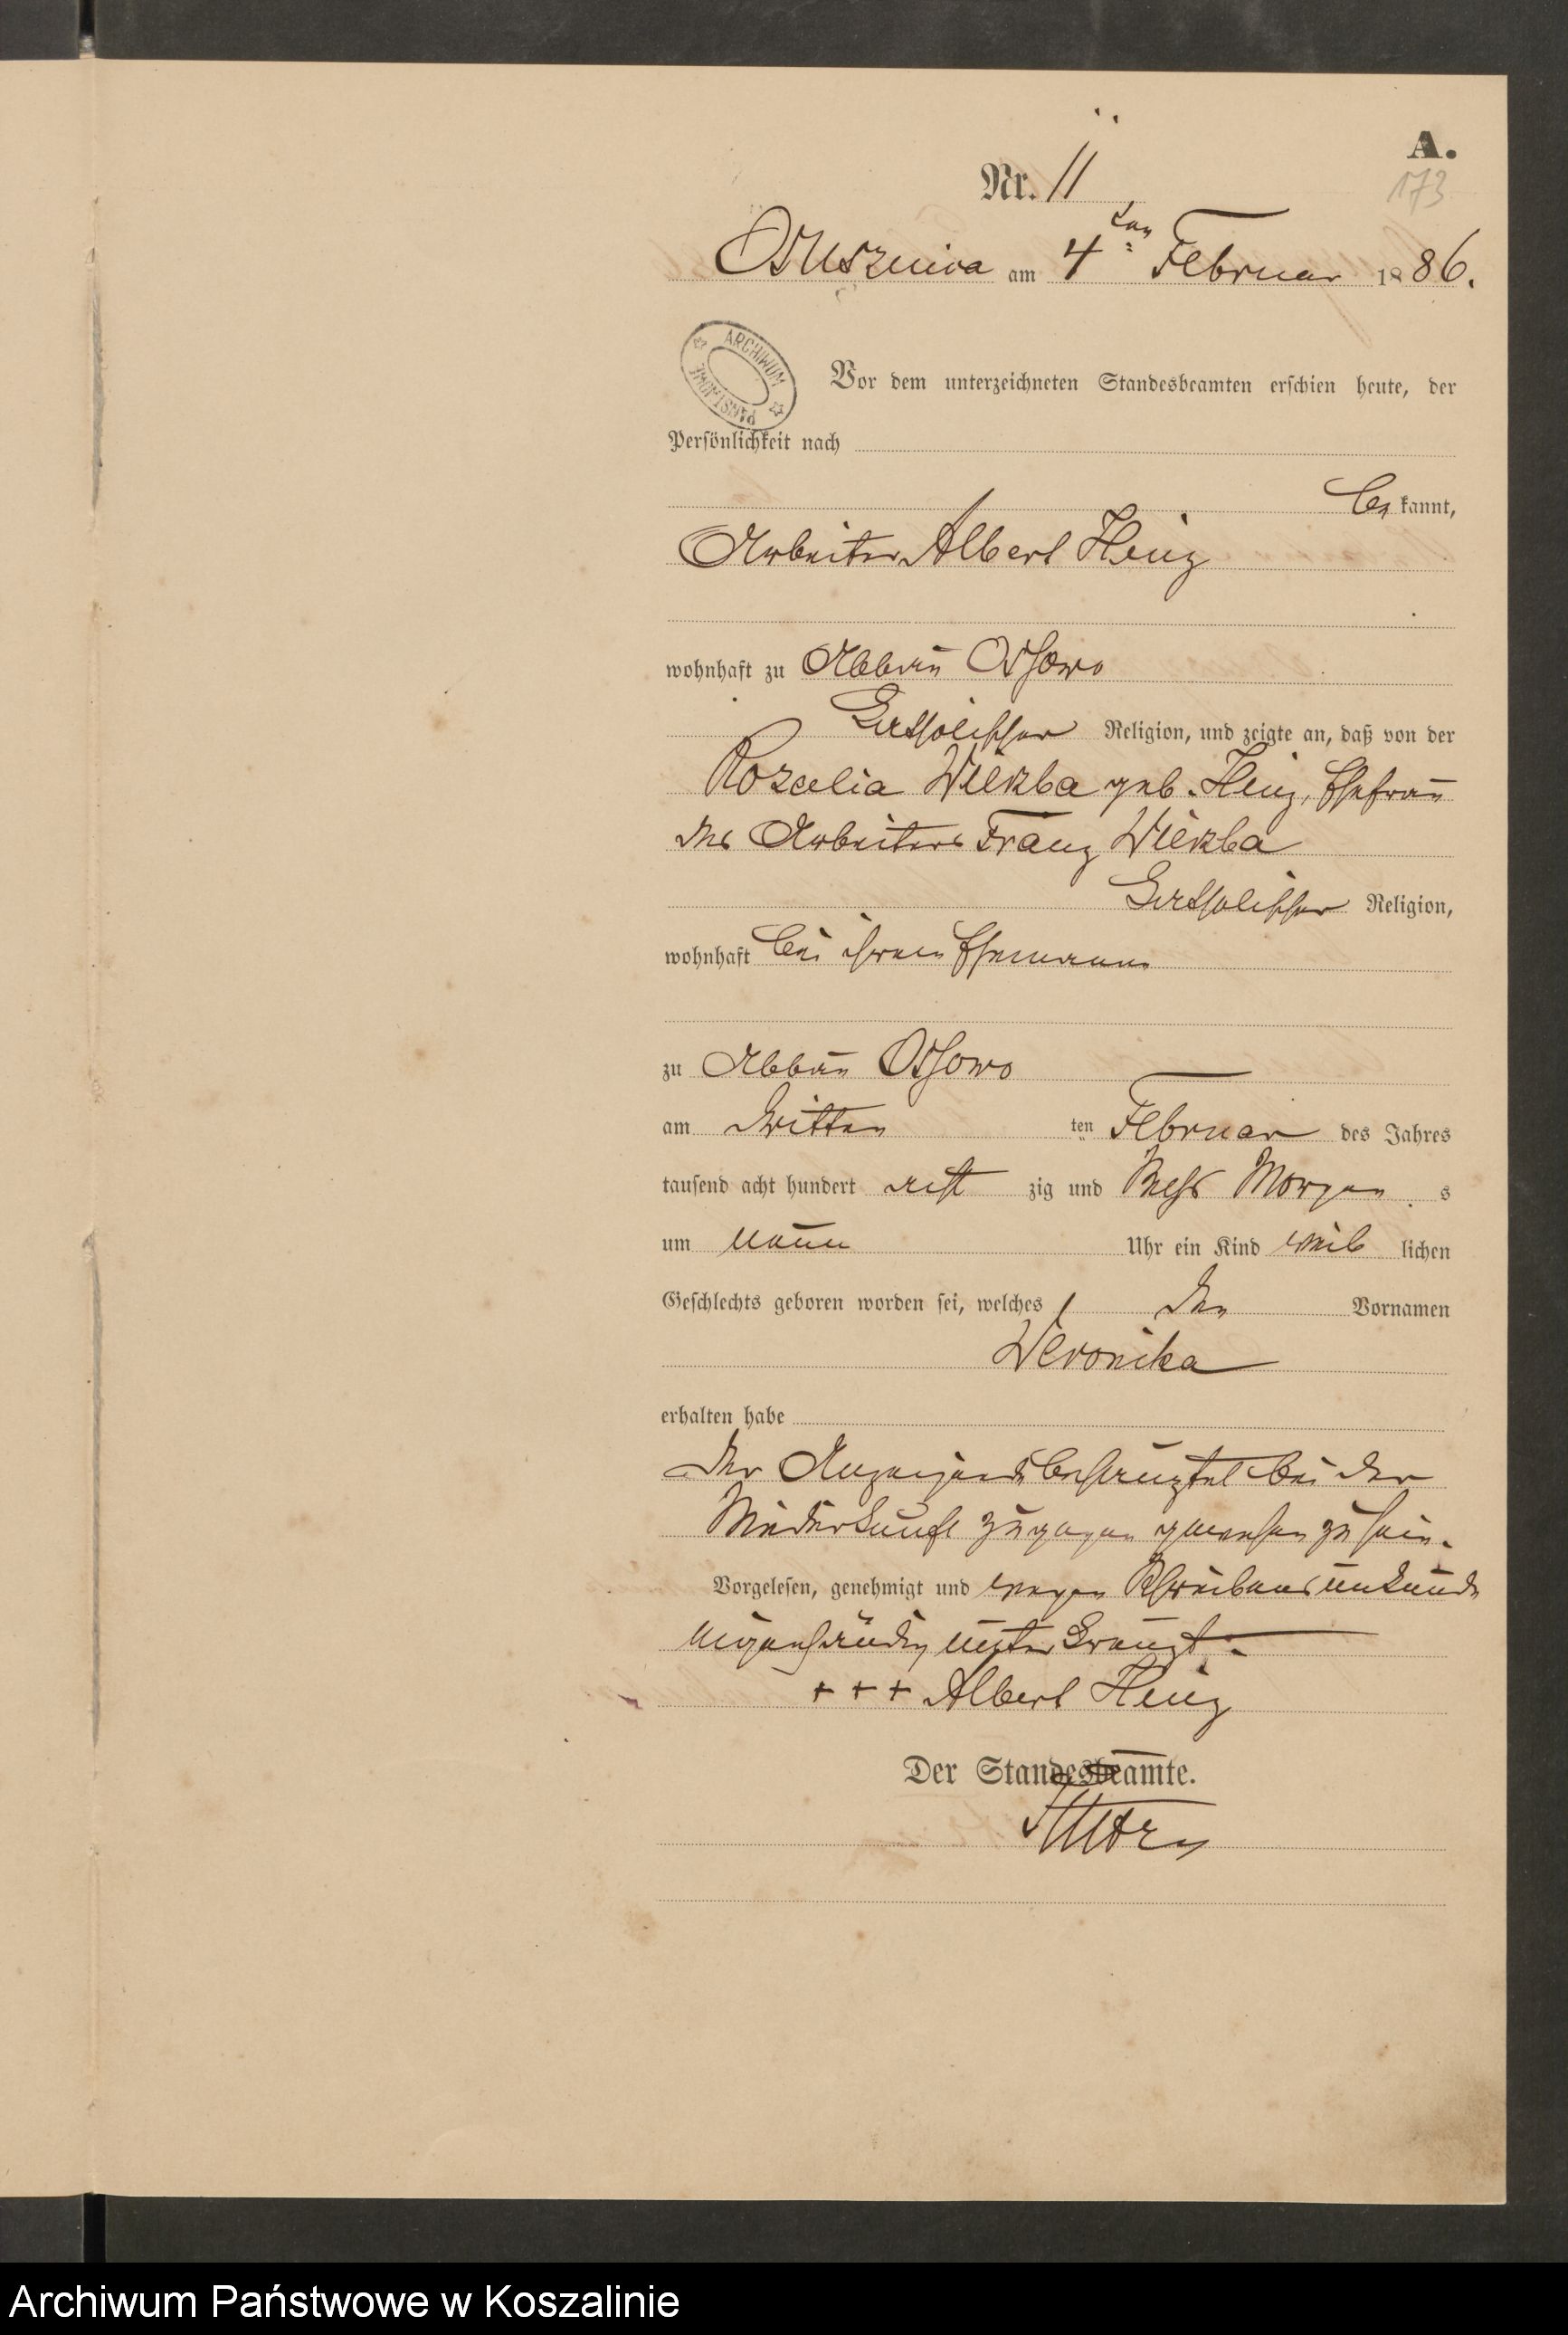 A.
173
Nr. 11
Osusznica am 4ten Februar 1886.
ARCHIWUM PAŃSTWOWE
Vor dem unterzeichneten Standesbeamten erschien heute, der
Persönlichkeit nach
be kannt,
Arbeiter Albert Heinz
wohnhaft zu Abbau Ossowo
katholischer Religion, und zeigte an, daß von der
Rozcelia Wieszba geb. Heinz, Ehefrau
des Arbeiters Franz Wieszba
katholischer Religion,
wohnhaft bei ihrem Ehemann
zu Abbau Ossowo
am dritten ten Februar des Jahres
tausend acht hundert acht zig und sechs Morgen s
um neun Uhr ein Kind weib lichen
Geschlechts geboren worden sei, welches den Vornamen
Weronika
erhalten habe
Der Anzeigende bei der
Niederkunft zugegen gewesen zu sein.
Vorgelesen, genehmigt und wegen Schreibensunkunde
eigenhändig unterkreuzt.
+ + + Albert Heinz
Der Standesbeamte.
Archiwum Państwowe w Koszalinie